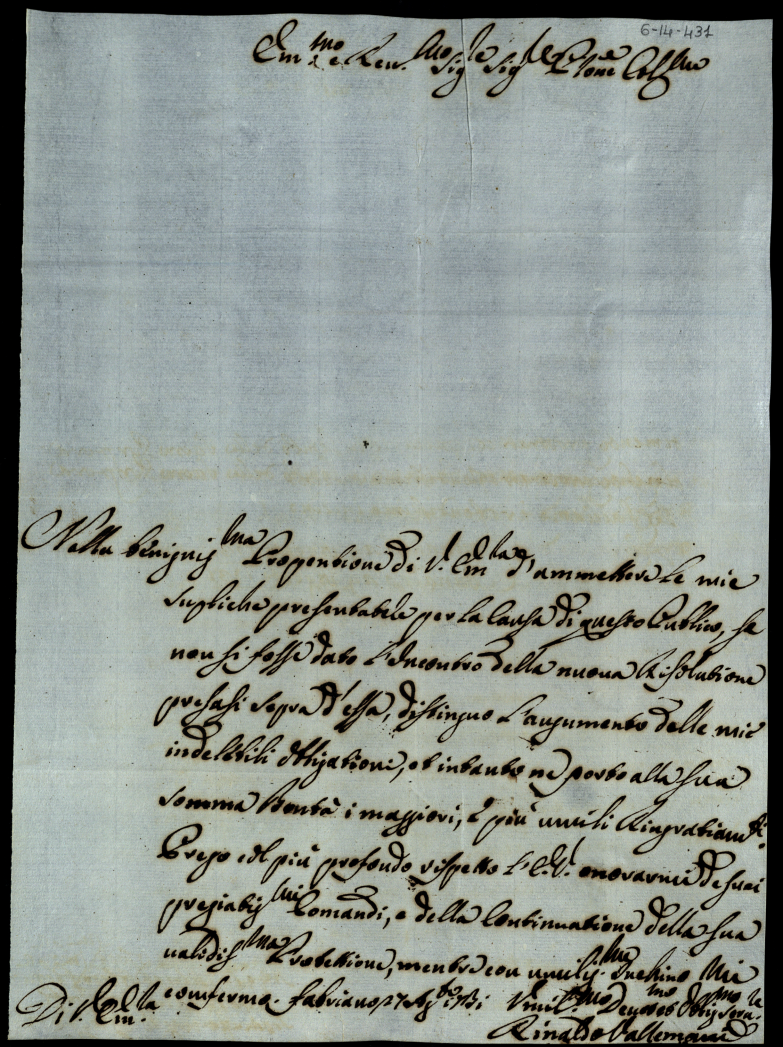 6-14-431
Em.mo e Rev.mo Sig.re Sig.re P.rone Col.mo
Nella benignis.ma Propentione di V. Em.za d'ammettere le mie
supliche presentabile per la Causa di questo Publico, se
non si fosse dato l'Incontro della nuova Risolutione
presasi sopra d'essa, distinguo l'augumento delle mie
indelebili obligationi, et intanto ne porto alla sua
somma Bontà i maggiori, e più umili Ringratiam.ti
Prego col più profondo rispetto l'E.V. onorarmi de suoi
pregiatis.mi Comandi, e della Continuatione della sua
validis.ma Protettione, mentre con umilis.mo Inchino mi
confermo. Fabriano 27
Di V. Em.za
Umil.mo Devot.mo Oblig.mo Ser.re
Rinaldo Vallemani